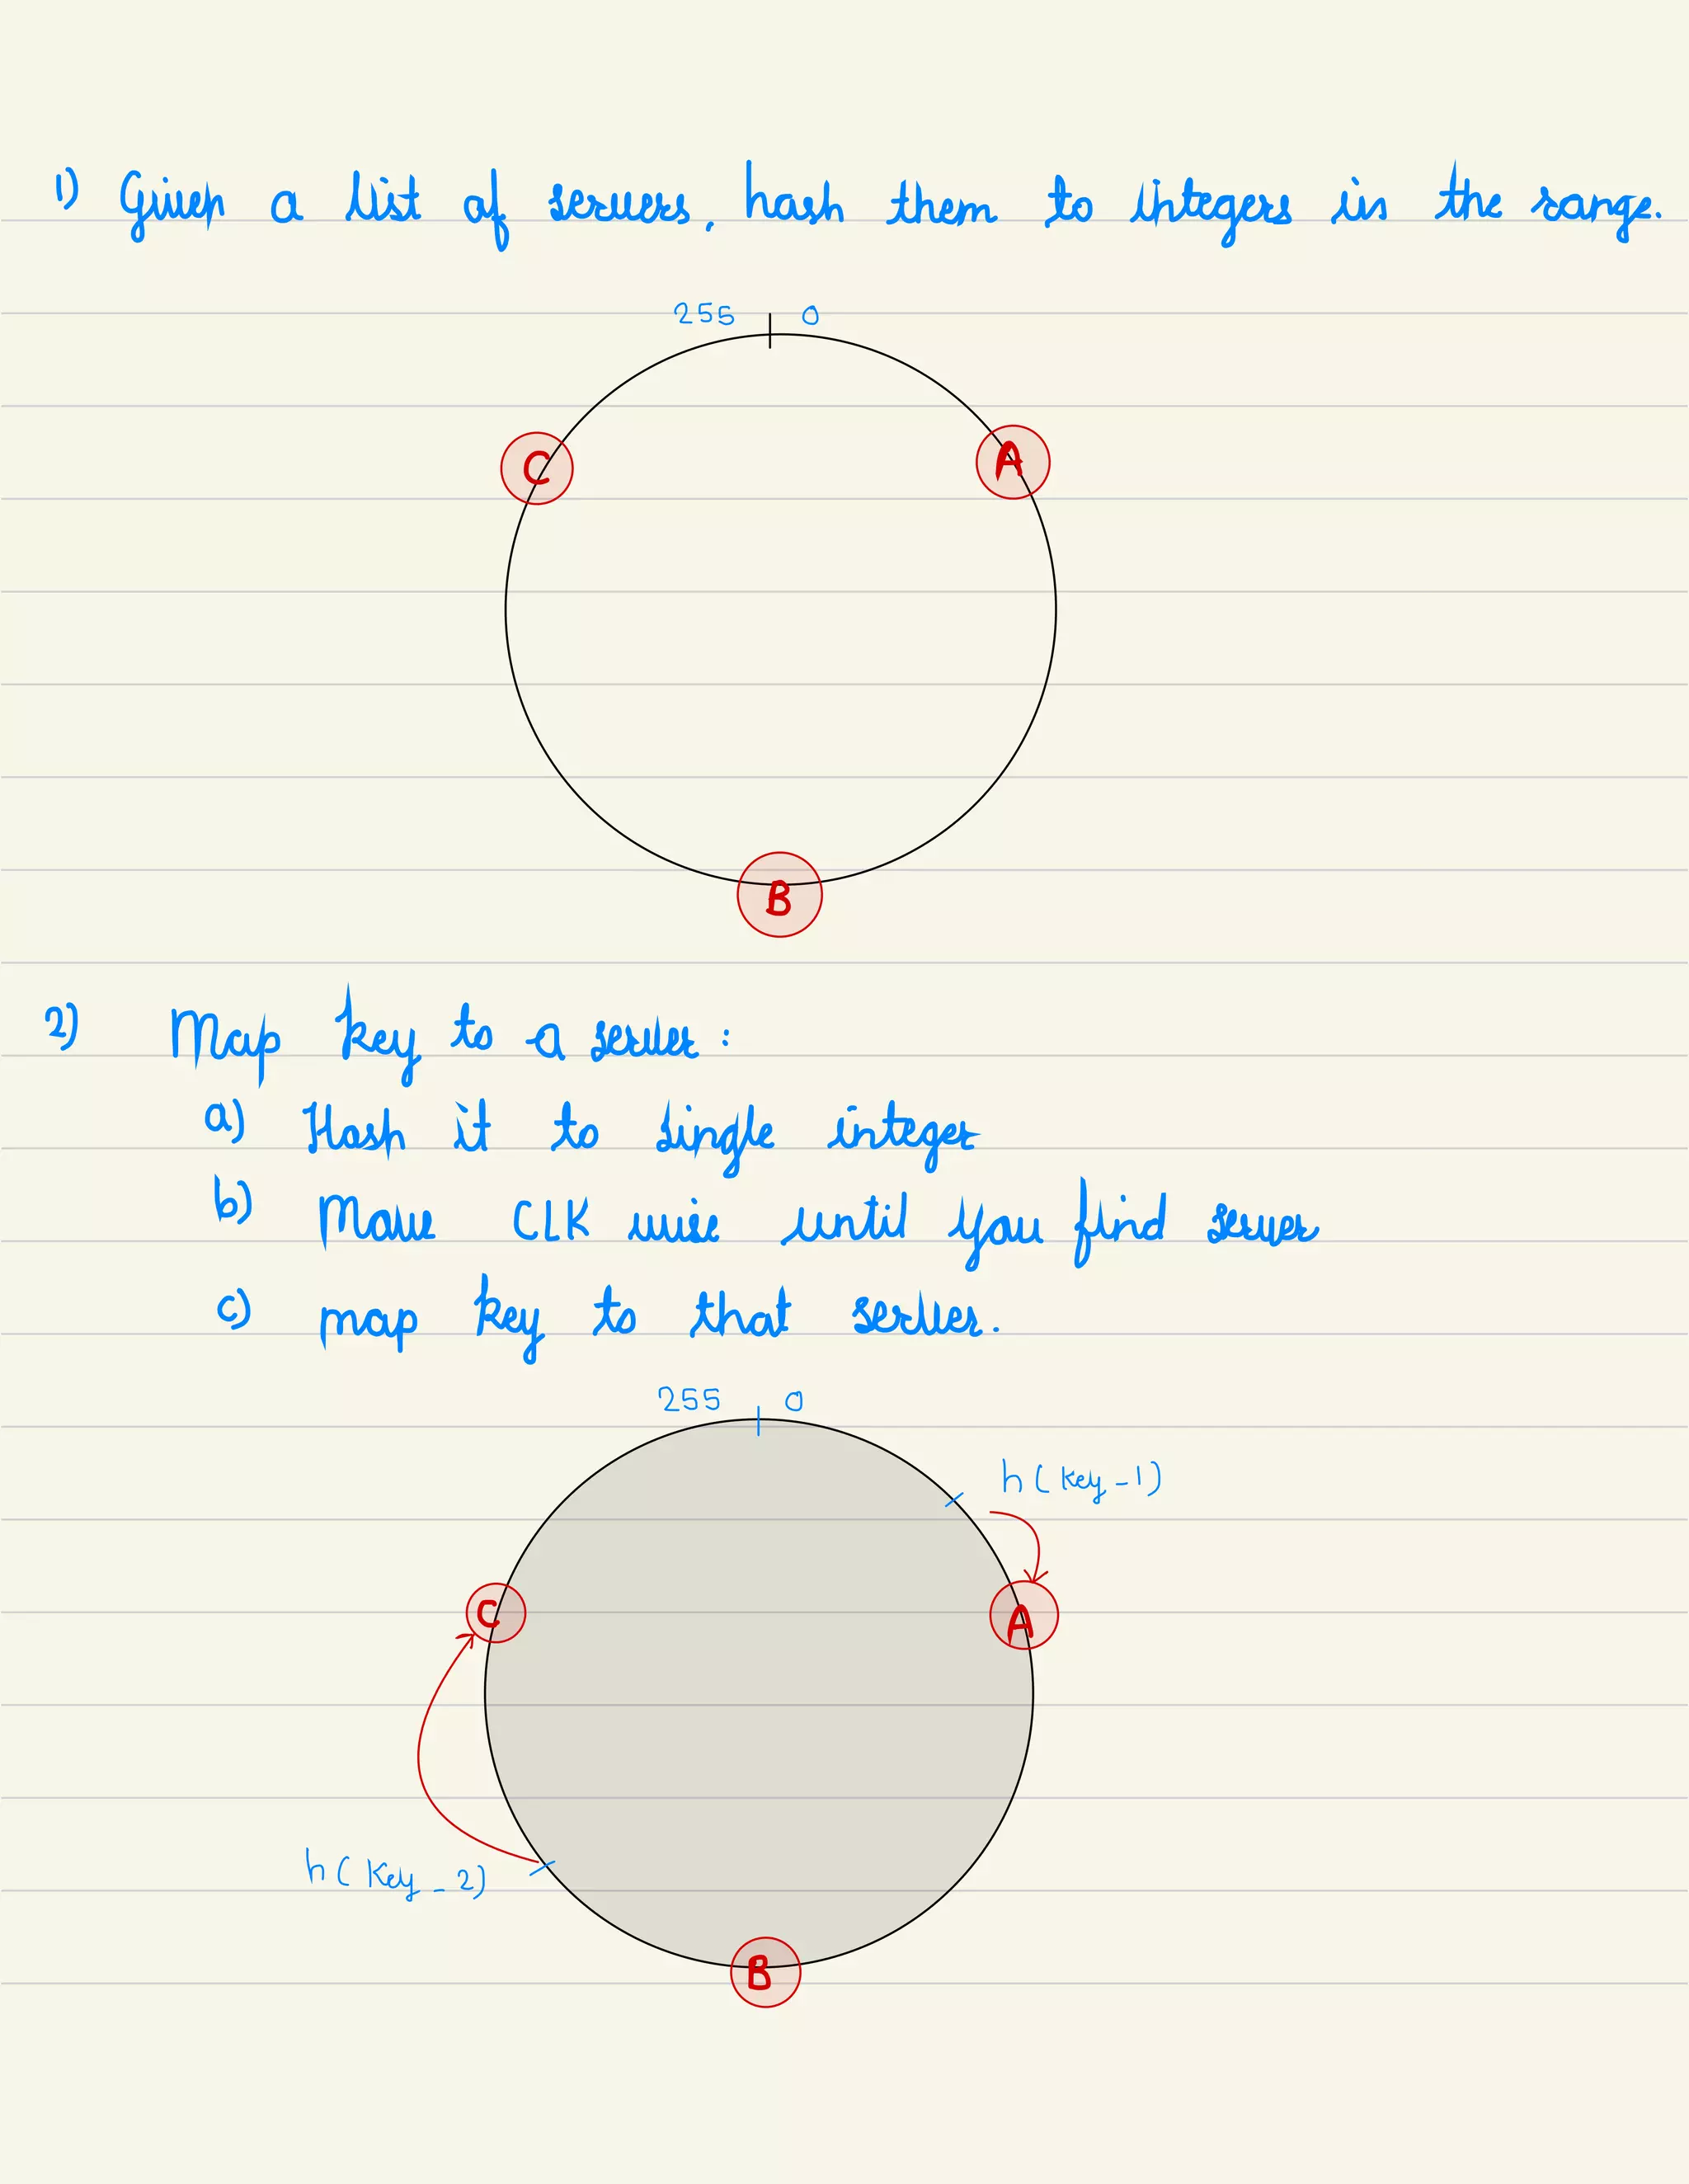 1) Given a list of servers, hash them to integers in the range.
255 0
C A
B
2) Map key to a server:
a) Hash it to single integer
b) Move CLK wise until you find server
c) map key to that server.
255 0
h(key-1)
C A
h(key-2)
B